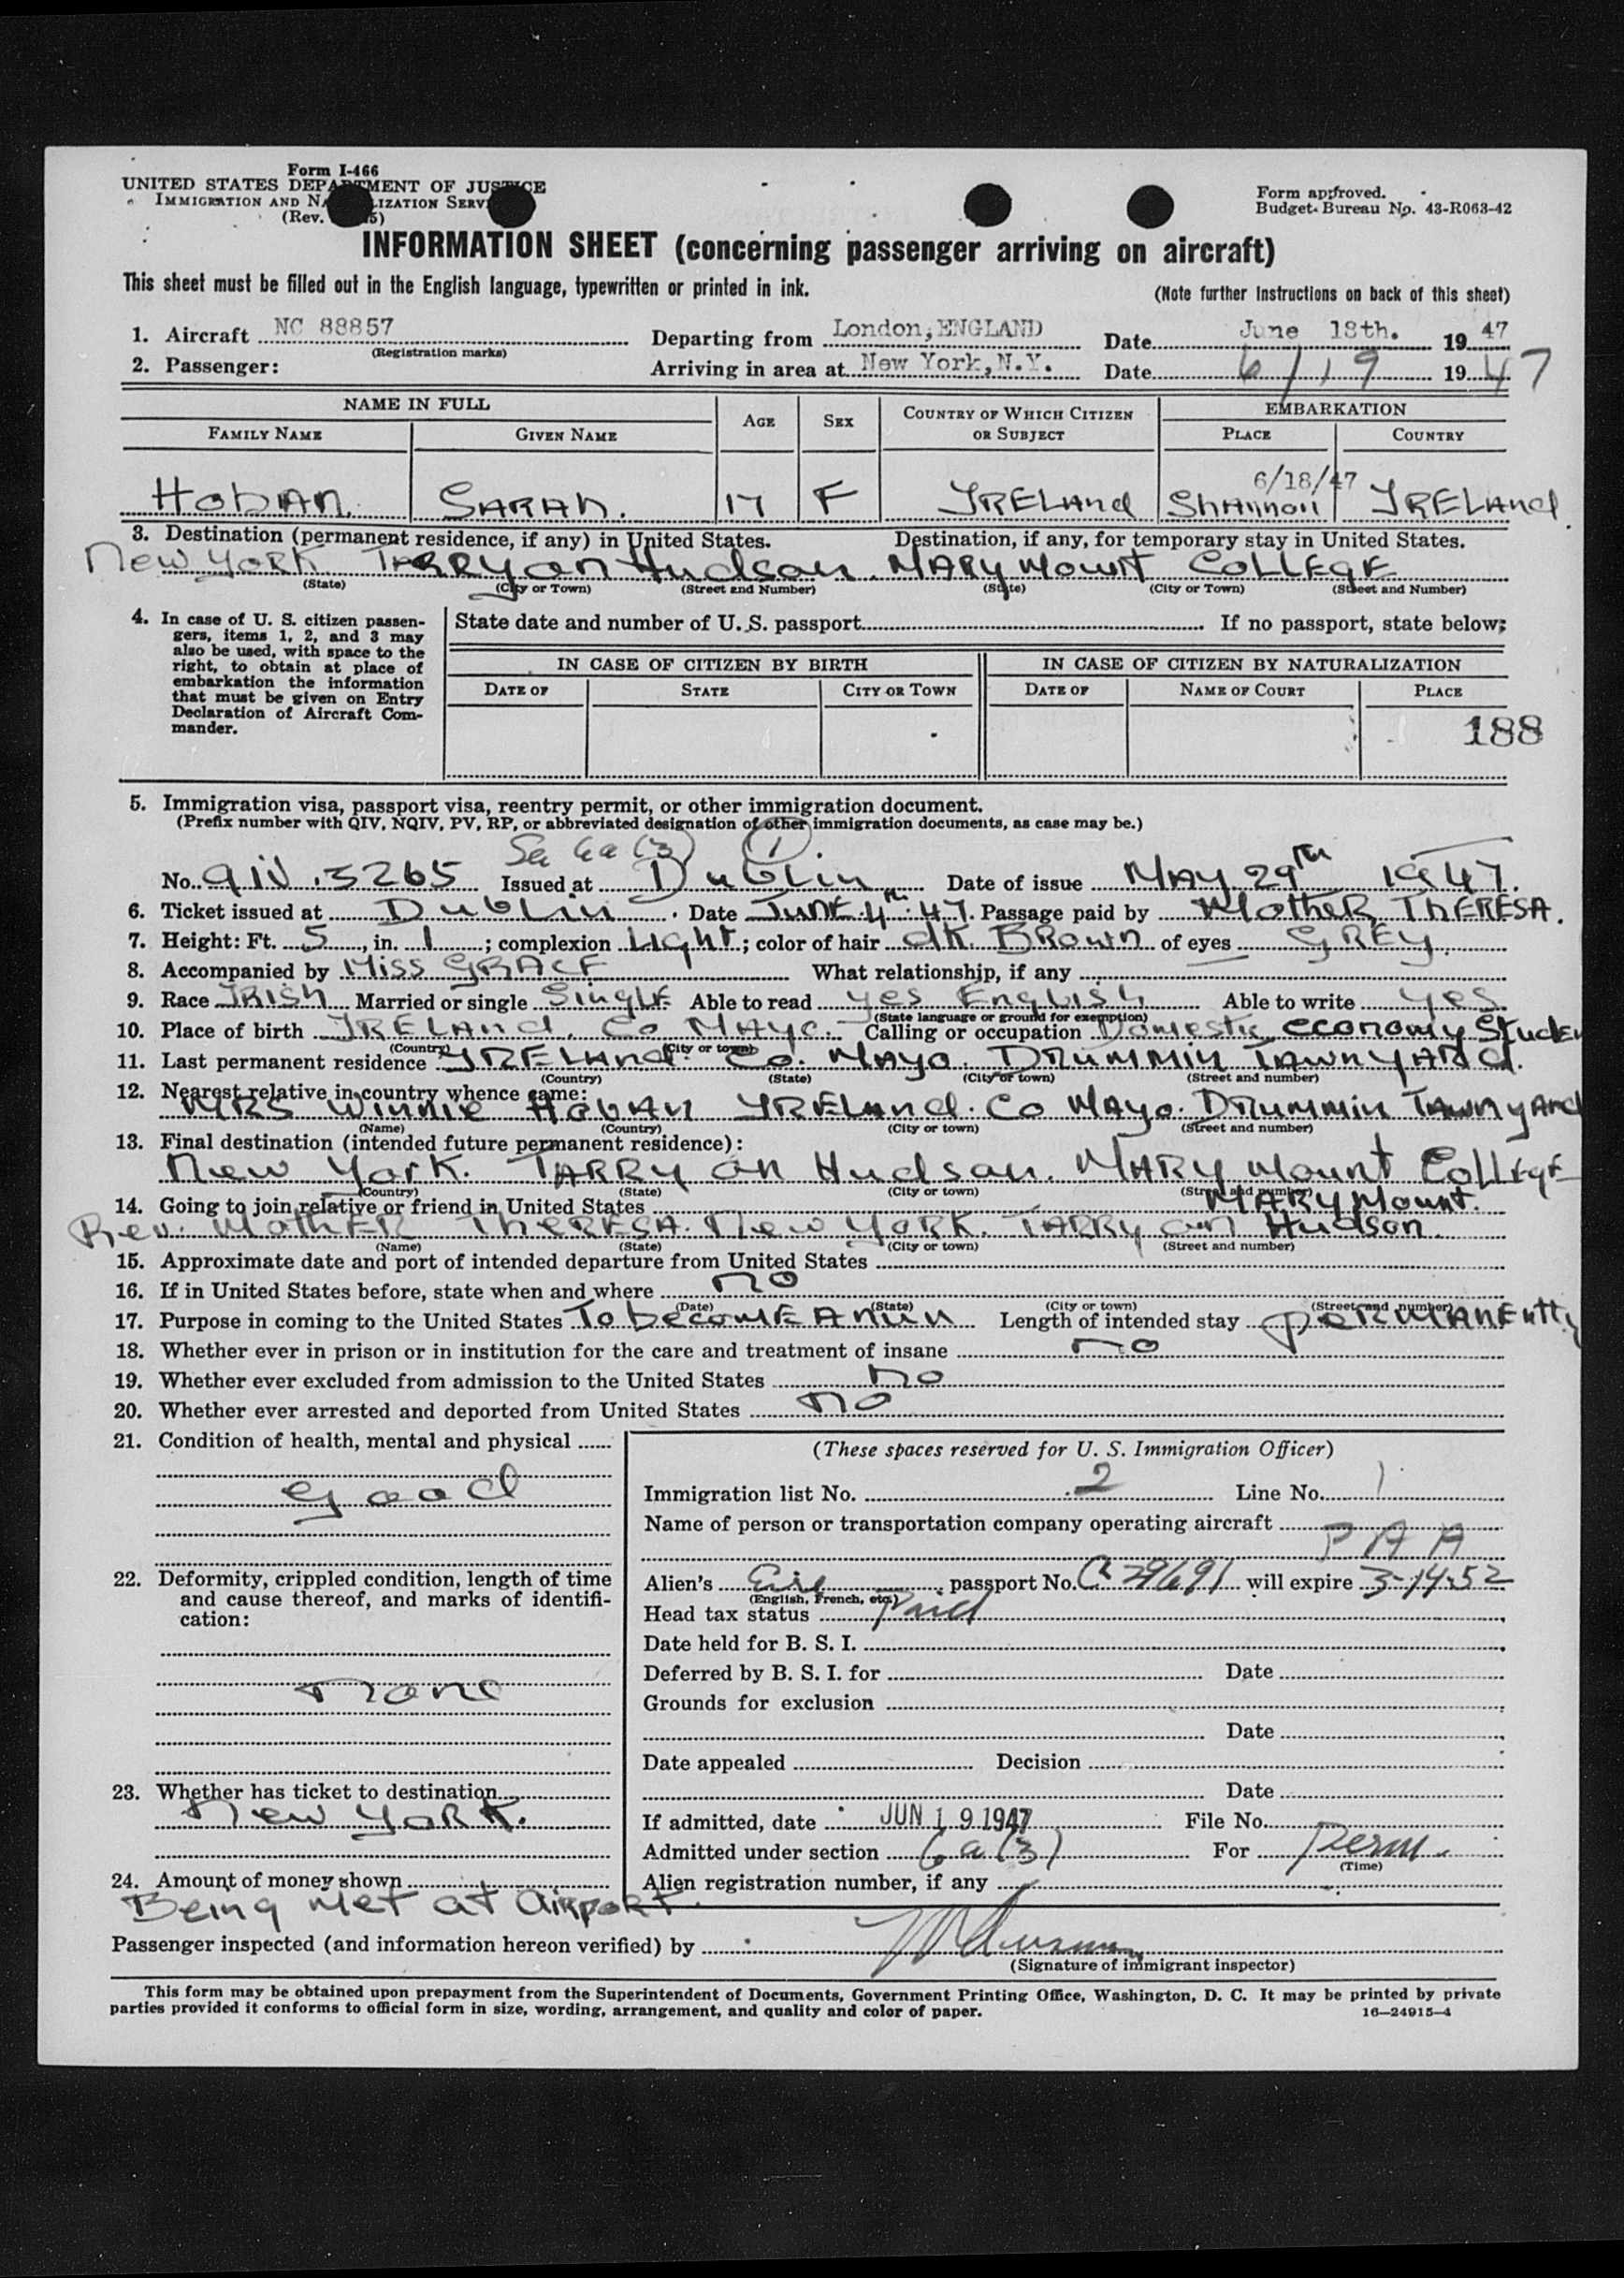 Form I-466
UNITED STATES DEPARTMENT OF JUSTICE
IMMIGRATION AND NATURALIZATION SERVICE
(Rev. 5)
Form approved.
Budget Bureau No. 43-R063-42
INFORMATION SHEET (concerning passenger arriving on aircraft)
This sheet must be filled out in the English language, typewritten or printed in ink.
(Note further instructions on back of this sheet)
1. Aircraft NC 88857 Departing from London, ENGLAND Date June 18th. 19 47
(Registration marks)
2. Passenger: Arriving in area at New York, N.Y. Date 6/19 19 47
NAME IN FULL AGE SEX COUNTRY OF WHICH CITIZEN OR SUBJECT EMBARKATION
FAMILY NAME GIVEN NAME PLACE COUNTRY
6/18/47
HobAN. SARAH. 17 F IRELAnd Shannon IRELAnd.
3. Destination (permanent residence, if any) in United States. Destination, if any, for temporary stay in United States.
New York TARRY on Hudson. MARYMOUNT COLLEGE
(State) (City or Town) (Street and Number) (State) (City or Town) (Street and Number)
4. In case of U. S. citizen passen-
gers, items 1, 2, and 3 may
also be used, with space to the
right, to obtain at place of
embarkation the information
that must be given on Entry
Declaration of Aircraft Com-
mander.
State date and number of U. S. passport If no passport, state below:
IN CASE OF CITIZEN BY BIRTH IN CASE OF CITIZEN BY NATURALIZATION
DATE OF STATE CITY OR TOWN DATE OF NAME OF COURT PLACE
188
5. Immigration visa, passport visa, reentry permit, or other immigration document.
(Prefix number with QIV, NQIV, PV, RP, or abbreviated designation of other immigration documents, as case may be.)
6a(3) 1
No. QIV. 3265 Issued at Dublin Date of issue MAY 29th 1947.
6. Ticket issued at Dublin. Date JUNE 4th 47. Passage paid by MOTHER THERESA.
7. Height: Ft. 5, in. 1; complexion Light; color of hair dk. BROWN of eyes GREY.
8. Accompanied by Miss GRACE What relationship, if any
9. Race IRISH Married or single SINGLE Able to read yes English Able to write yes
(State language or ground for exemption)
10. Place of birth IRELAnd, Co MAYO. Calling or occupation Domestic economy Student
(Country) (City or town)
11. Last permanent residence IRELAnd. Co. MAYO. DRUMMIN TAWNYARd.
(Country) (State) (City or town) (Street and number)
12. Nearest relative in country whence came:
MRS Winnie HObAN IRELAnd. Co MAYO. DRUMMIN TAWNYARd
(Name) (Country) (City or town) (Street and number)
13. Final destination (intended future permanent residence):
New York. TARRY on Hudson. MARYMOUNT COLLEGE
(Country) (State) (City or town) (Street and number)
14. Going to join relative or friend in United States MARYMOUNT.
Rev. MOTHER THERESA. New YORK. TARRY on Hudson.
(Name) (State) (City or town) (Street and number)
15. Approximate date and port of intended departure from United States
16. If in United States before, state when and where no
(Date) (State) (City or town) (Street and number)
17. Purpose in coming to the United States To become A nun Length of intended stay PERMANENtly
18. Whether ever in prison or in institution for the care and treatment of insane no
19. Whether ever excluded from admission to the United States no
20. Whether ever arrested and deported from United States no
21. Condition of health, mental and physical
good
22. Deformity, crippled condition, length of time
and cause thereof, and marks of identifi-
cation:
none
23. Whether has ticket to destination
New YORK.
24. Amount of money shown
Being met at airport
(These spaces reserved for U. S. Immigration Officer)
Immigration list No. 2 Line No. 1
Name of person or transportation company operating aircraft
PAA
Alien's Eire passport No. 39691 will expire 3-14-52
(English, French, etc.)
Head tax status Paid
Date held for B. S. I.
Deferred by B. S. I. for Date
Grounds for exclusion
Date
Date appealed Decision
Date
If admitted, date JUN 19 1947 File No.
Admitted under section 6a(3) For Perm.
(Time)
Alien registration number, if any
Passenger inspected (and information hereon verified) by
(Signature of immigrant inspector)
This form may be obtained upon prepayment from the Superintendent of Documents, Government Printing Office, Washington, D. C. It may be printed by private
parties provided it conforms to official form in size, wording, arrangement, and quality and color of paper. 16—24915-4